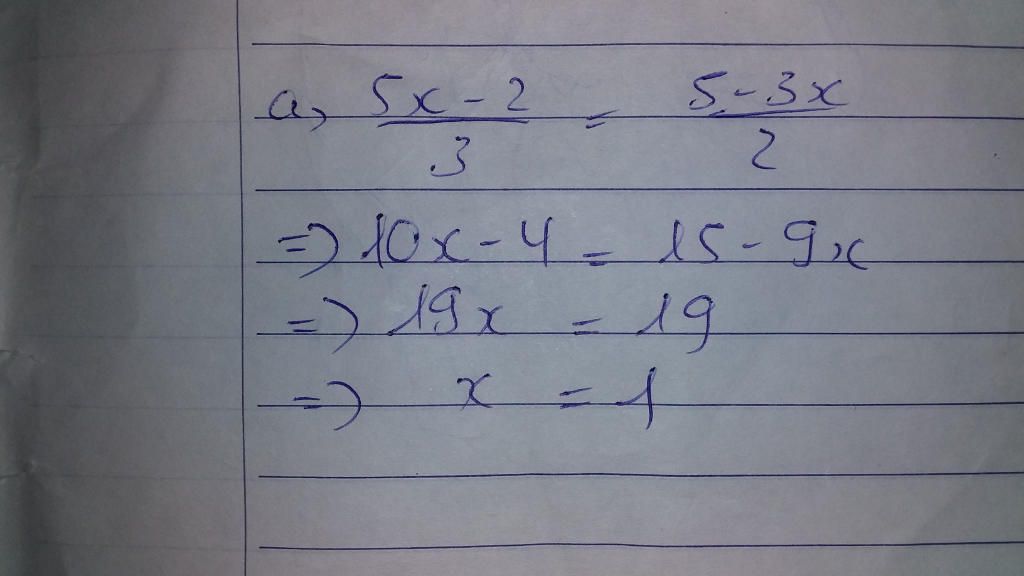 a, (5x - 2)/3 = (5 - 3x)/2
=> 10x - 4 = 15 - 9x
=> 19x = 19
=> x = 1